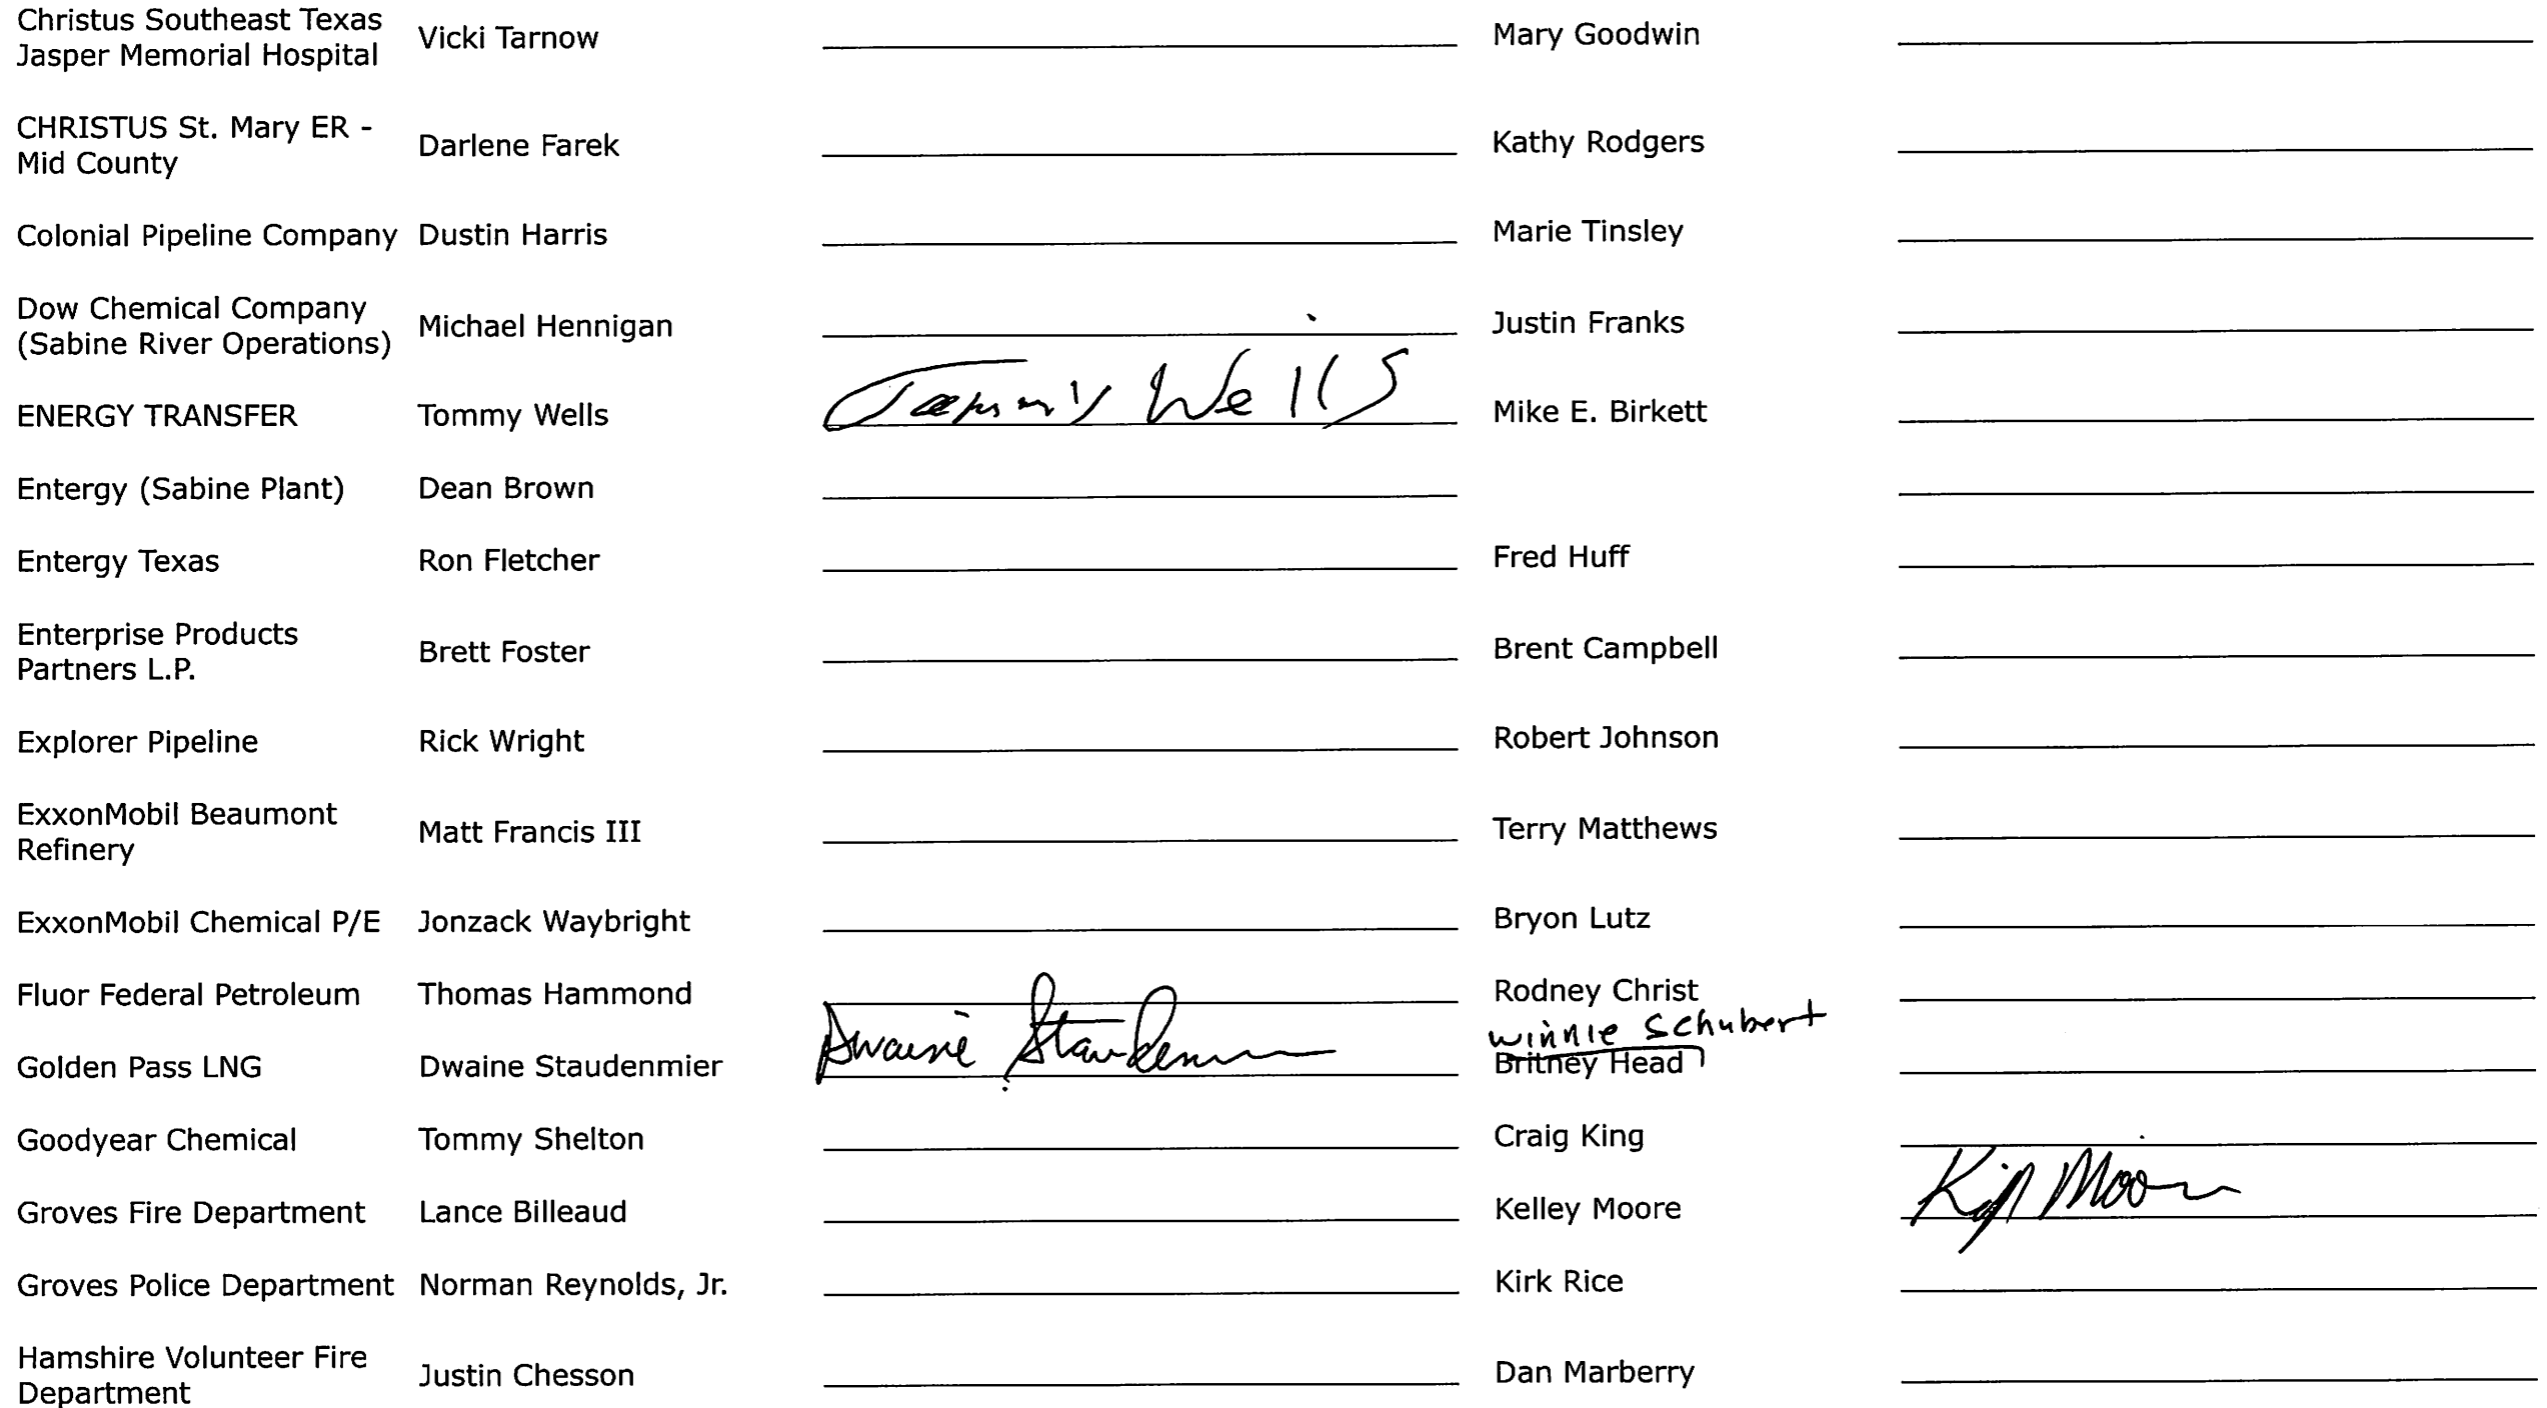 Christus Southeast Texas
Jasper Memorial Hospital Vicki Tarnow Mary Goodwin
CHRISTUS St. Mary ER -
Mid County Darlene Farek Kathy Rodgers
Colonial Pipeline Company Dustin Harris Marie Tinsley
Dow Chemical Company
(Sabine River Operations) Michael Hennigan Justin Franks
ENERGY TRANSFER Tommy Wells Tommy Wells Mike E. Birkett
Entergy (Sabine Plant) Dean Brown
Entergy Texas Ron Fletcher Fred Huff
Enterprise Products
Partners L.P. Brett Foster Brent Campbell
Explorer Pipeline Rick Wright Robert Johnson
ExxonMobil Beaumont
Refinery Matt Francis III Terry Matthews
ExxonMobil Chemical P/E Jonzack Waybright Bryon Lutz
Fluor Federal Petroleum Thomas Hammond Rodney Christ
winnie Schubert
Golden Pass LNG Dwaine Staudenmier Dwaine Britney Head
Goodyear Chemical Tommy Shelton Craig King
Groves Fire Department Lance Billeaud Kelley Moore
Groves Police Department Norman Reynolds, Jr. Kirk Rice
Hamshire Volunteer Fire
Department Justin Chesson Dan Marberry